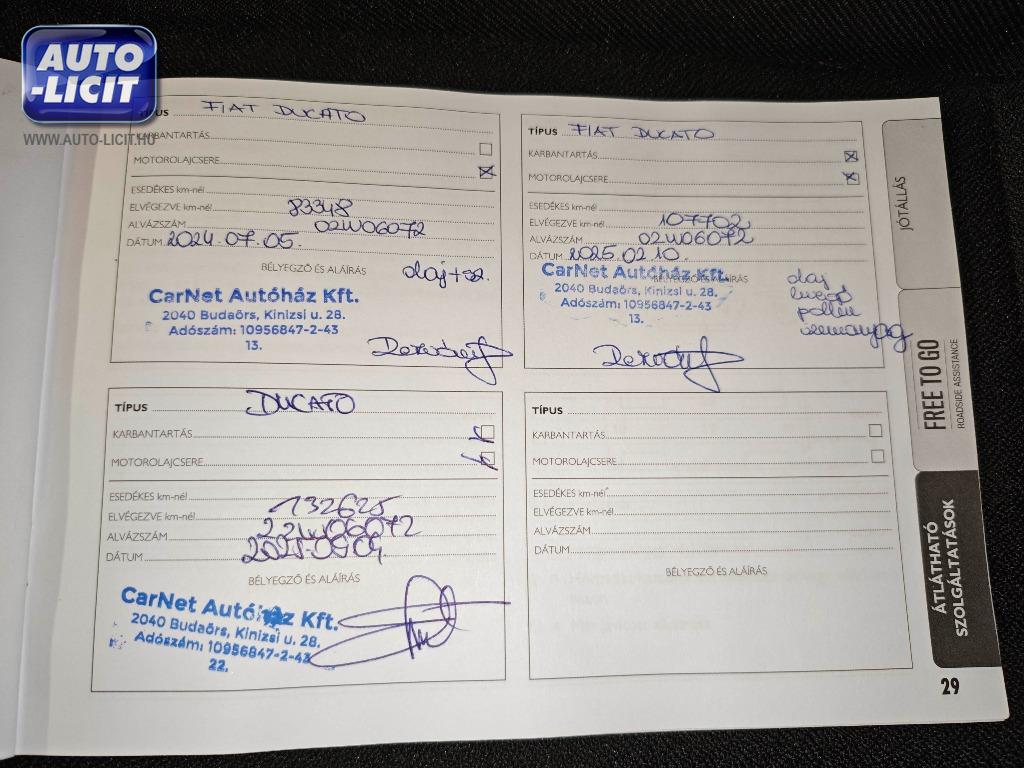 AUTO
-LICIT
WWW.AUTO-LICIT.HU
TÍPUS FIAT DUCATO
KARBANTARTÁS
MOTOROLAJCSERE
ESEDÉKES km-nél
ELVÉGEZVE km-nél 83348
ALVÁZSZÁM 02W06072
DÁTUM 2024.07.05.
BÉLYEGZŐ ÉS ALÁÍRÁS olaj+sz.
CarNet Autóház Kft.
2040 Budaörs, Kinizsi u. 28.
Adószám: 10956847-2-43
13.
TÍPUS FIAT DUCATO
KARBANTARTÁS
MOTOROLAJCSERE
ESEDÉKES km-nél
ELVÉGEZVE km-nél 107702
ALVÁZSZÁM 02W06072
DÁTUM 2025.02.10.
BÉLYEGZŐ ÉS ALÁÍRÁS
CarNet Autóház Kft.
2040 Budaörs, Kinizsi u. 28.
Adószám: 10956847-2-43
13.
olaj
levegő
pollen
üzemanyag
TÍPUS DUCATO
KARBANTARTÁS
MOTOROLAJCSERE
ESEDÉKES km-nél
ELVÉGEZVE km-nél 132625
ALVÁZSZÁM
DÁTUM 2025.09.04
BÉLYEGZŐ ÉS ALÁÍRÁS
CarNet Autóház Kft.
2040 Budaörs, Kinizsi u. 28.
Adószám: 10956847-2-43
22.
TÍPUS
KARBANTARTÁS
MOTOROLAJCSERE
ESEDÉKES km-nél
ELVÉGEZVE km-nél
ALVÁZSZÁM
DÁTUM
BÉLYEGZŐ ÉS ALÁÍRÁS
JÓTÁLLÁS
FREE TO GO
ROADSIDE ASSISTANCE
ÁTLÁTHATÓ
SZOLGÁLTATÁSOK
29